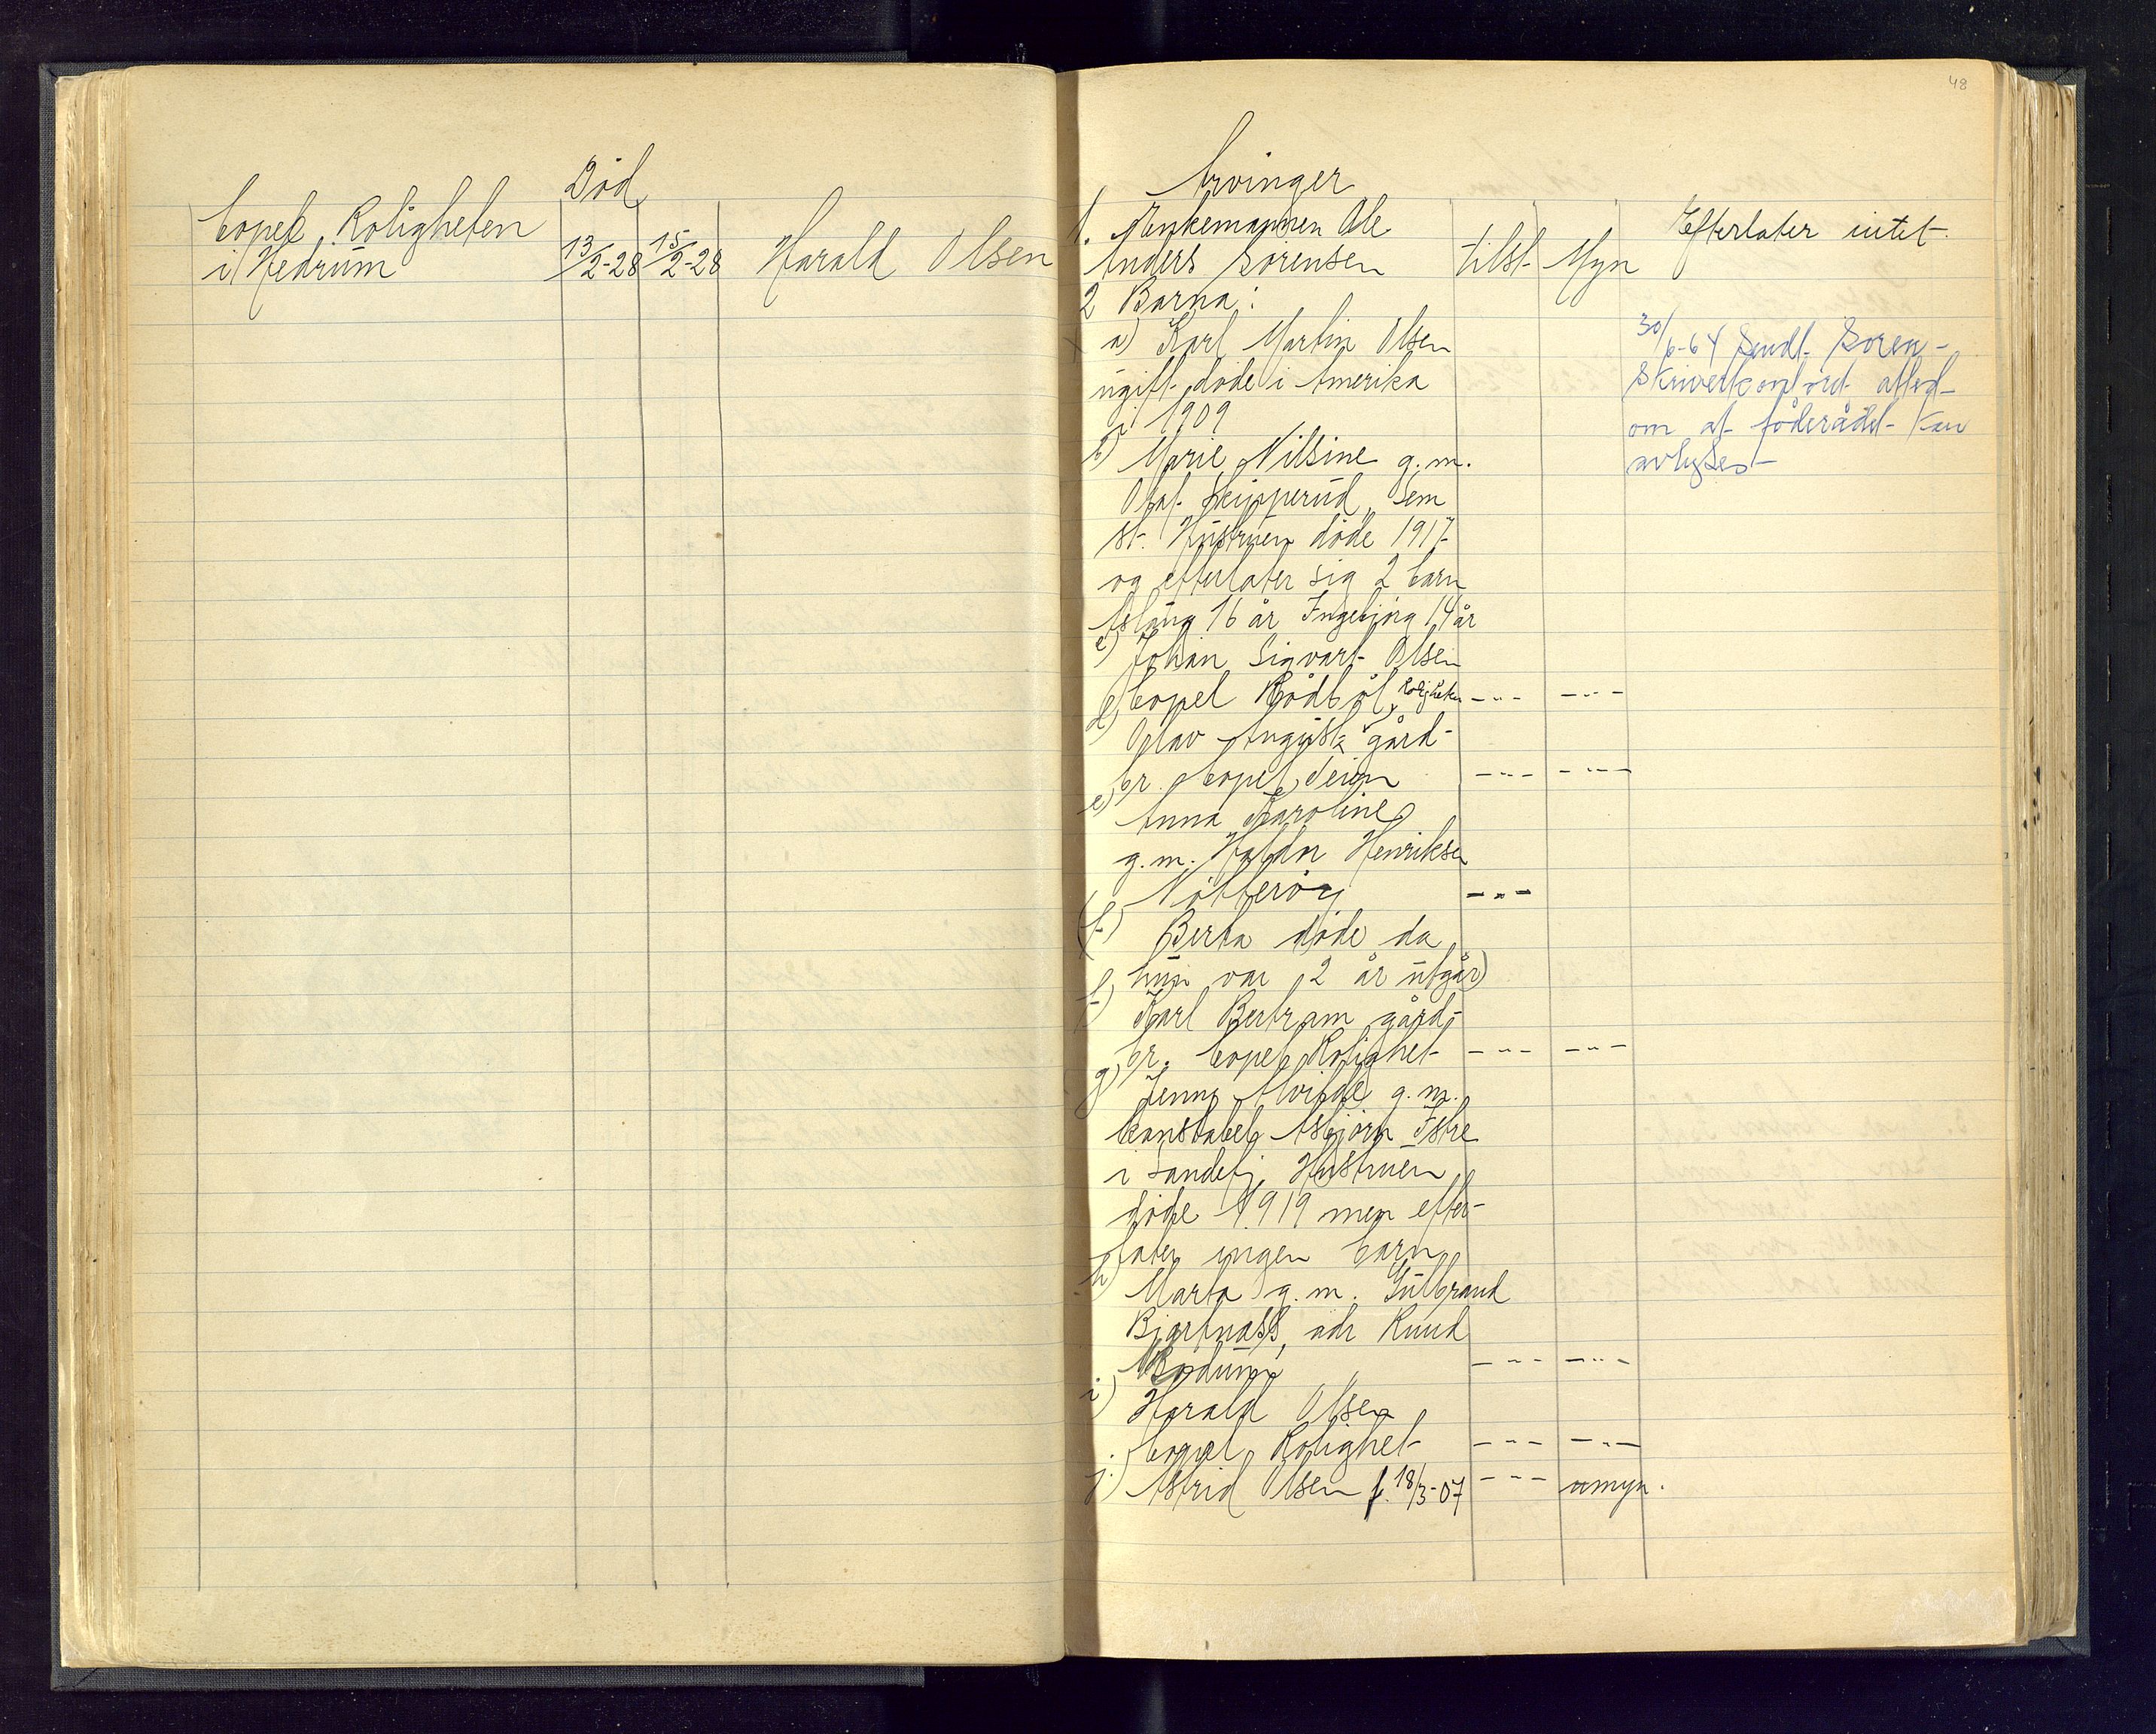 Død
bopel Roligheten
i Hedrum
13/2-28
15/2-28
Harald Olsen
48
Arvinger
1. Enkemannen Ole
Anders Sørensen
tilst. Myn
Efterlater intet.
2 Barna:
a) Karl Martin Olsen
ugift døde i Amerika
i 1909
30/6-64 Sendt Soren-
skriverkontoret attest
om at føderådet kan
avlyses
b) Marie Nilsine g.m.
Olaf Skipperud, Sem
st. Hustruen døde 1917
og efterlater sig 2 barn
Aslaug 16 år Ingebjørg 14 år
c) Johan Sigvart Olsen
bopel Rødbøl, Roligheten -"- -"-
d) Olav August gård-
br. bopel, Teigen -"- -"-
e) Anna Karoline
g.m. Haldor Henriksen
Nøtterøy -"-
(f) Berta døde da
hun var 2 år utgår)
f) Karl Bertram gård-
br. bopel Rolighet -"- -"-
g) Jenny Alvilde g.m.
konstabel Asbjørn Istre
i Sandefj. Hustruen
døde 1919 men efter-
later ingen barn
h) Marta g.m. Gulbrand
Bjartnæss, adr Ruud
Modum -"- -"-
i) Harald Olsen
bopel Rolighet -"- -"-
j) Astrid Olsen f. 18/3-07 -"- umyn.